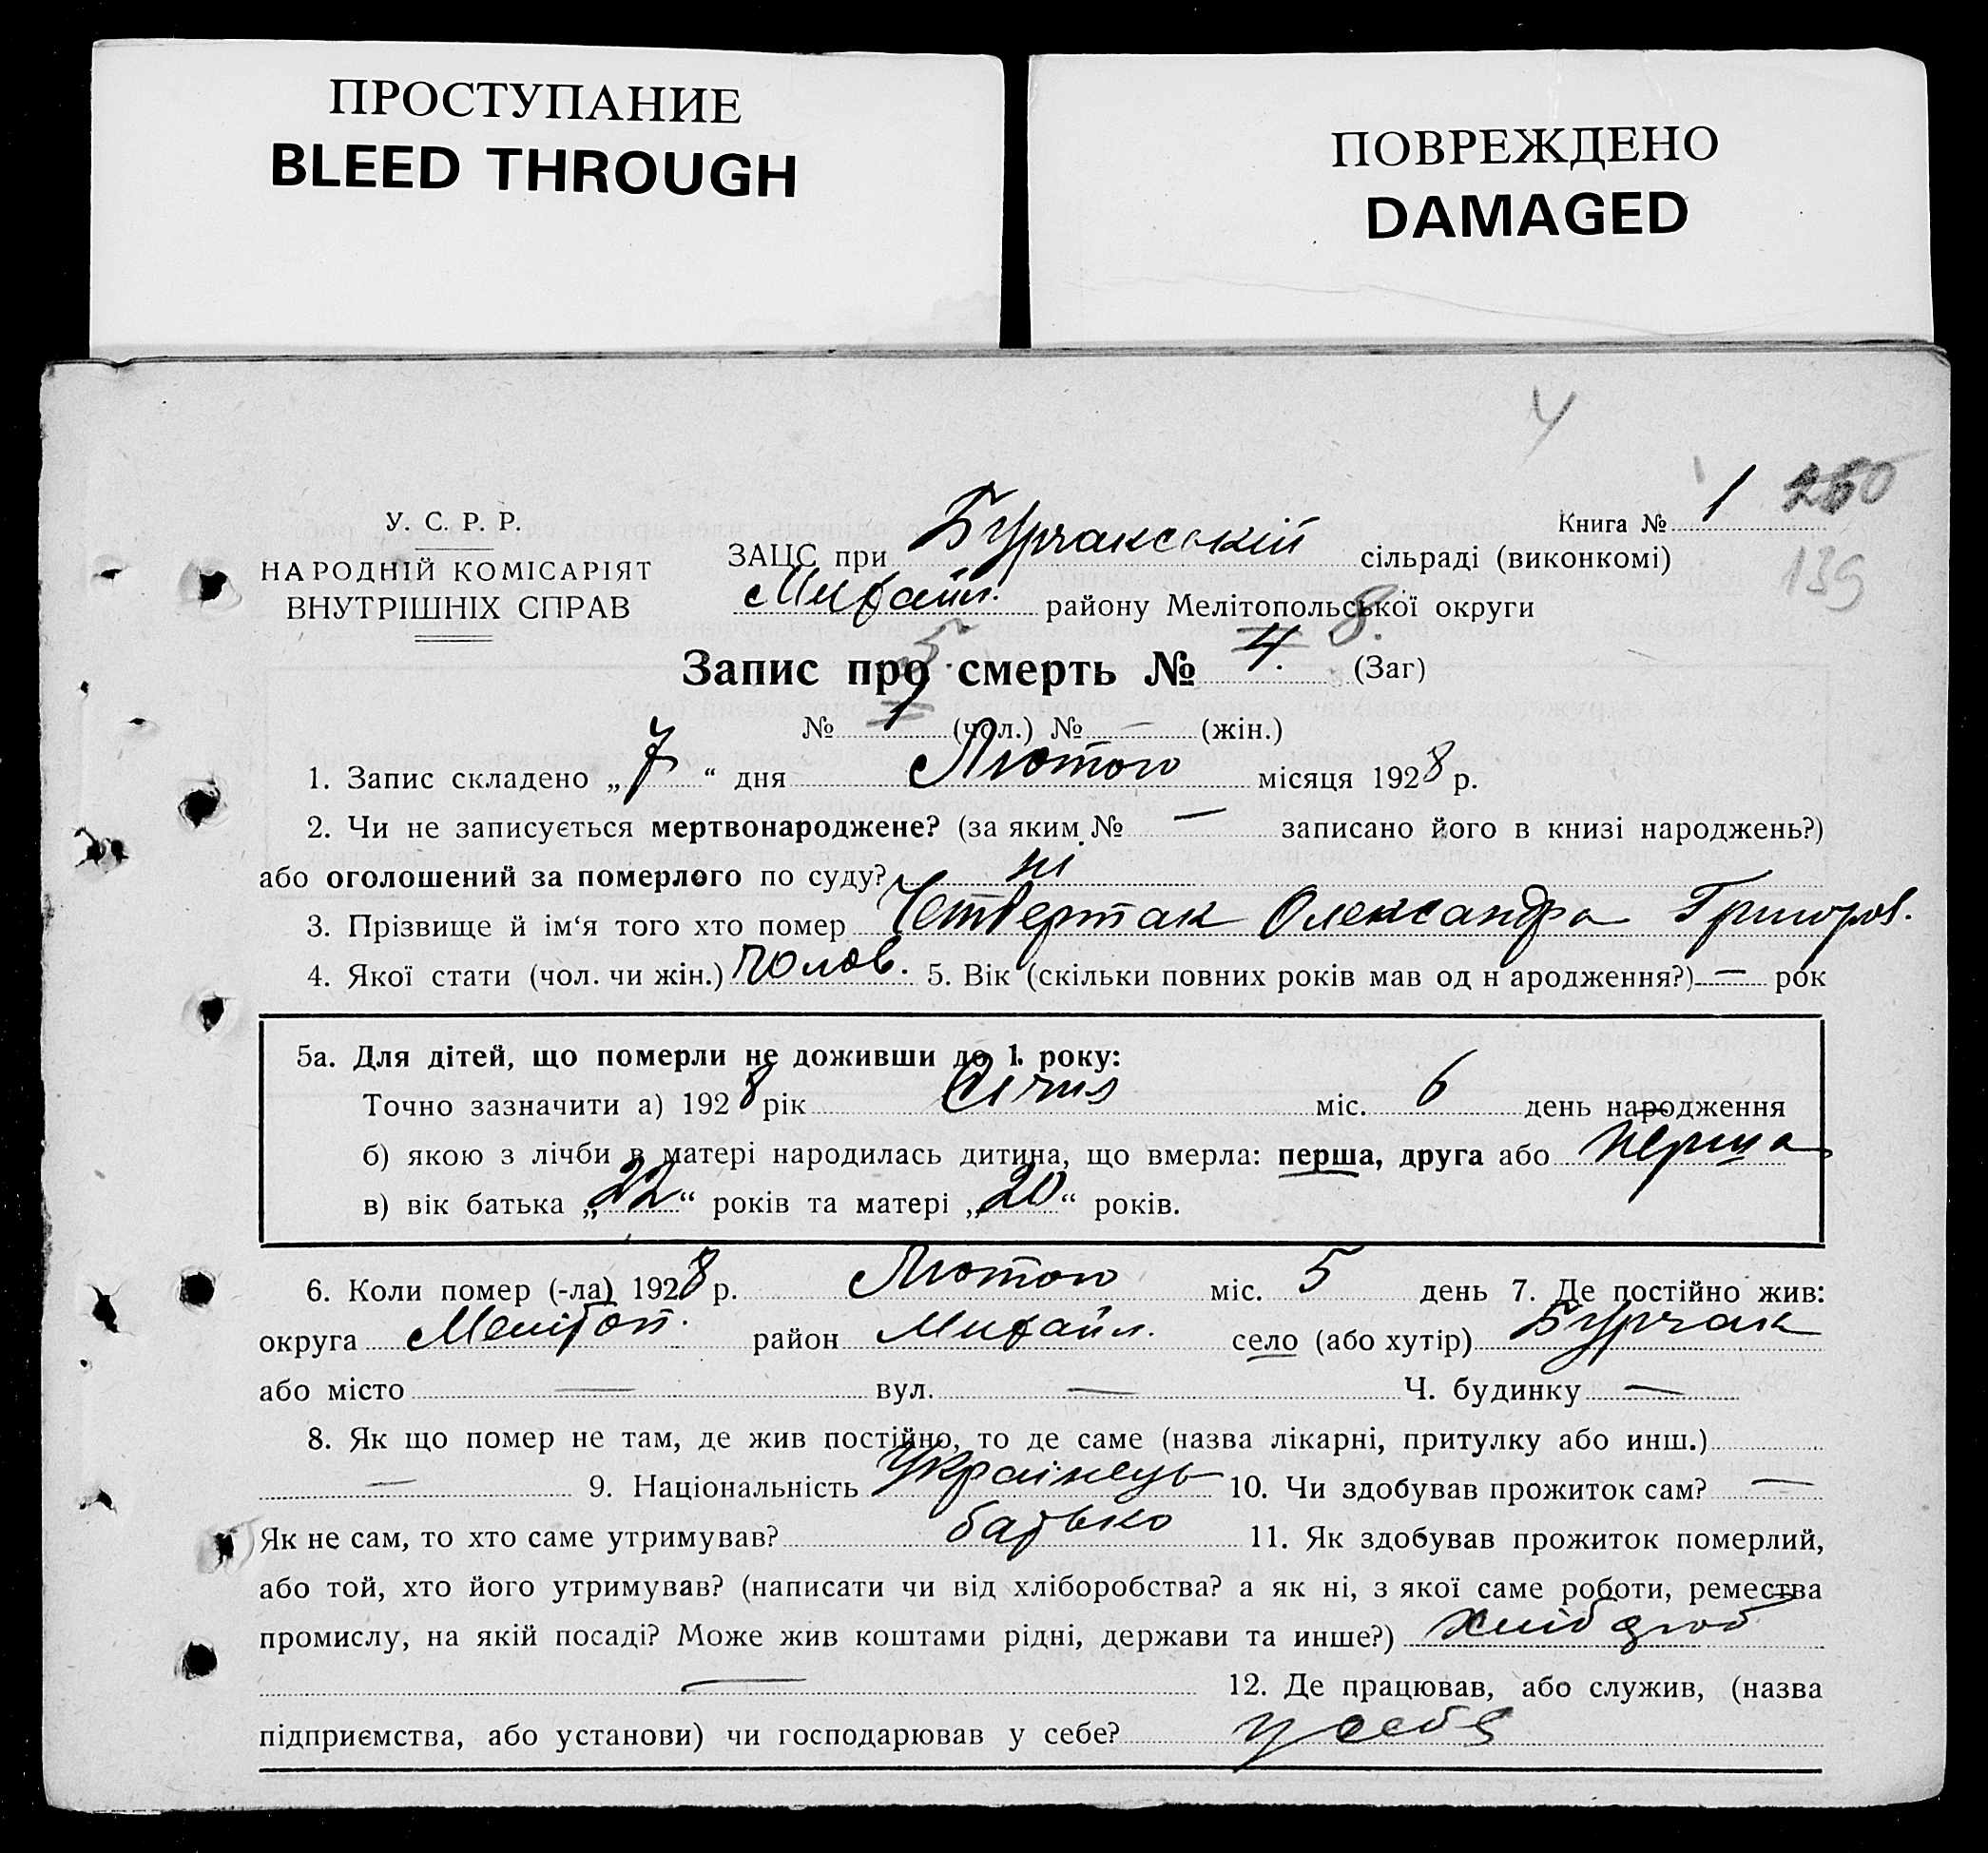 ПРОСТУПАНИЕ
BLEED THROUGH
ПОВРЕЖДЕНО
DAMAGED
У. С. Р. Р.
НАРОДНІЙ КОМІСАРІЯТ
ВНУТРІШНІХ СПРАВ
Книга № 1
139
ЗАЦС при Бурчакській сільраді (виконкомі)
Михайл. району Мелітопольської округи
Запис про смерть № 4. 8. (Заг)
5.
№ 1 (чол.) № — (жін.)
1. Запис складено „7“ дня Лютого місяця 1928 р.
2. Чи не записується мертвонароджене? (за яким № — записано його в книзі народжень?)
або оголошений за померлого по суду? ні
3. Прізвище й ім‘я того хто помер Четвертак Олександра Григоров.
4. Якої стати (чол. чи жін.) Чолов. 5. Вік (скільки повних років мав од н ародження?) — рок
5а. Для дітей, що померли не доживши до 1. року:
Точно зазначити а) 1928 рік Січня міс. 6 день народження
б) якою з лічби в матері народилась дитина, що вмерла: перша, друга або перша
в) вік батька „22“ років та матері „20“ років.
6. Коли помер (-ла) 1928 р. Лютого міс. 5 день 7. Де постійно жив:
округа Мелітоп. район Михайл. село (або хутір) Бурчак
або місто — вул. — Ч. будинку —
8. Як що помер не там, де жив постійно, то де саме (назва лікарні, притулку або инш.)
— 9. Національність Українець 10. Чи здобував прожиток сам? —
Як не сам, то хто саме утримував? батько 11. Як здобував прожиток померлий,
або той, хто його утримував? (написати чи від хліборобства? а як ні, з якої саме роботи, ремества
промислу, на якій посаді? Може жив коштами рідні, держави та инше?)
— 12. Де працював, або служив, (назва
підприємства, або установи) чи господарював у себе? у себя